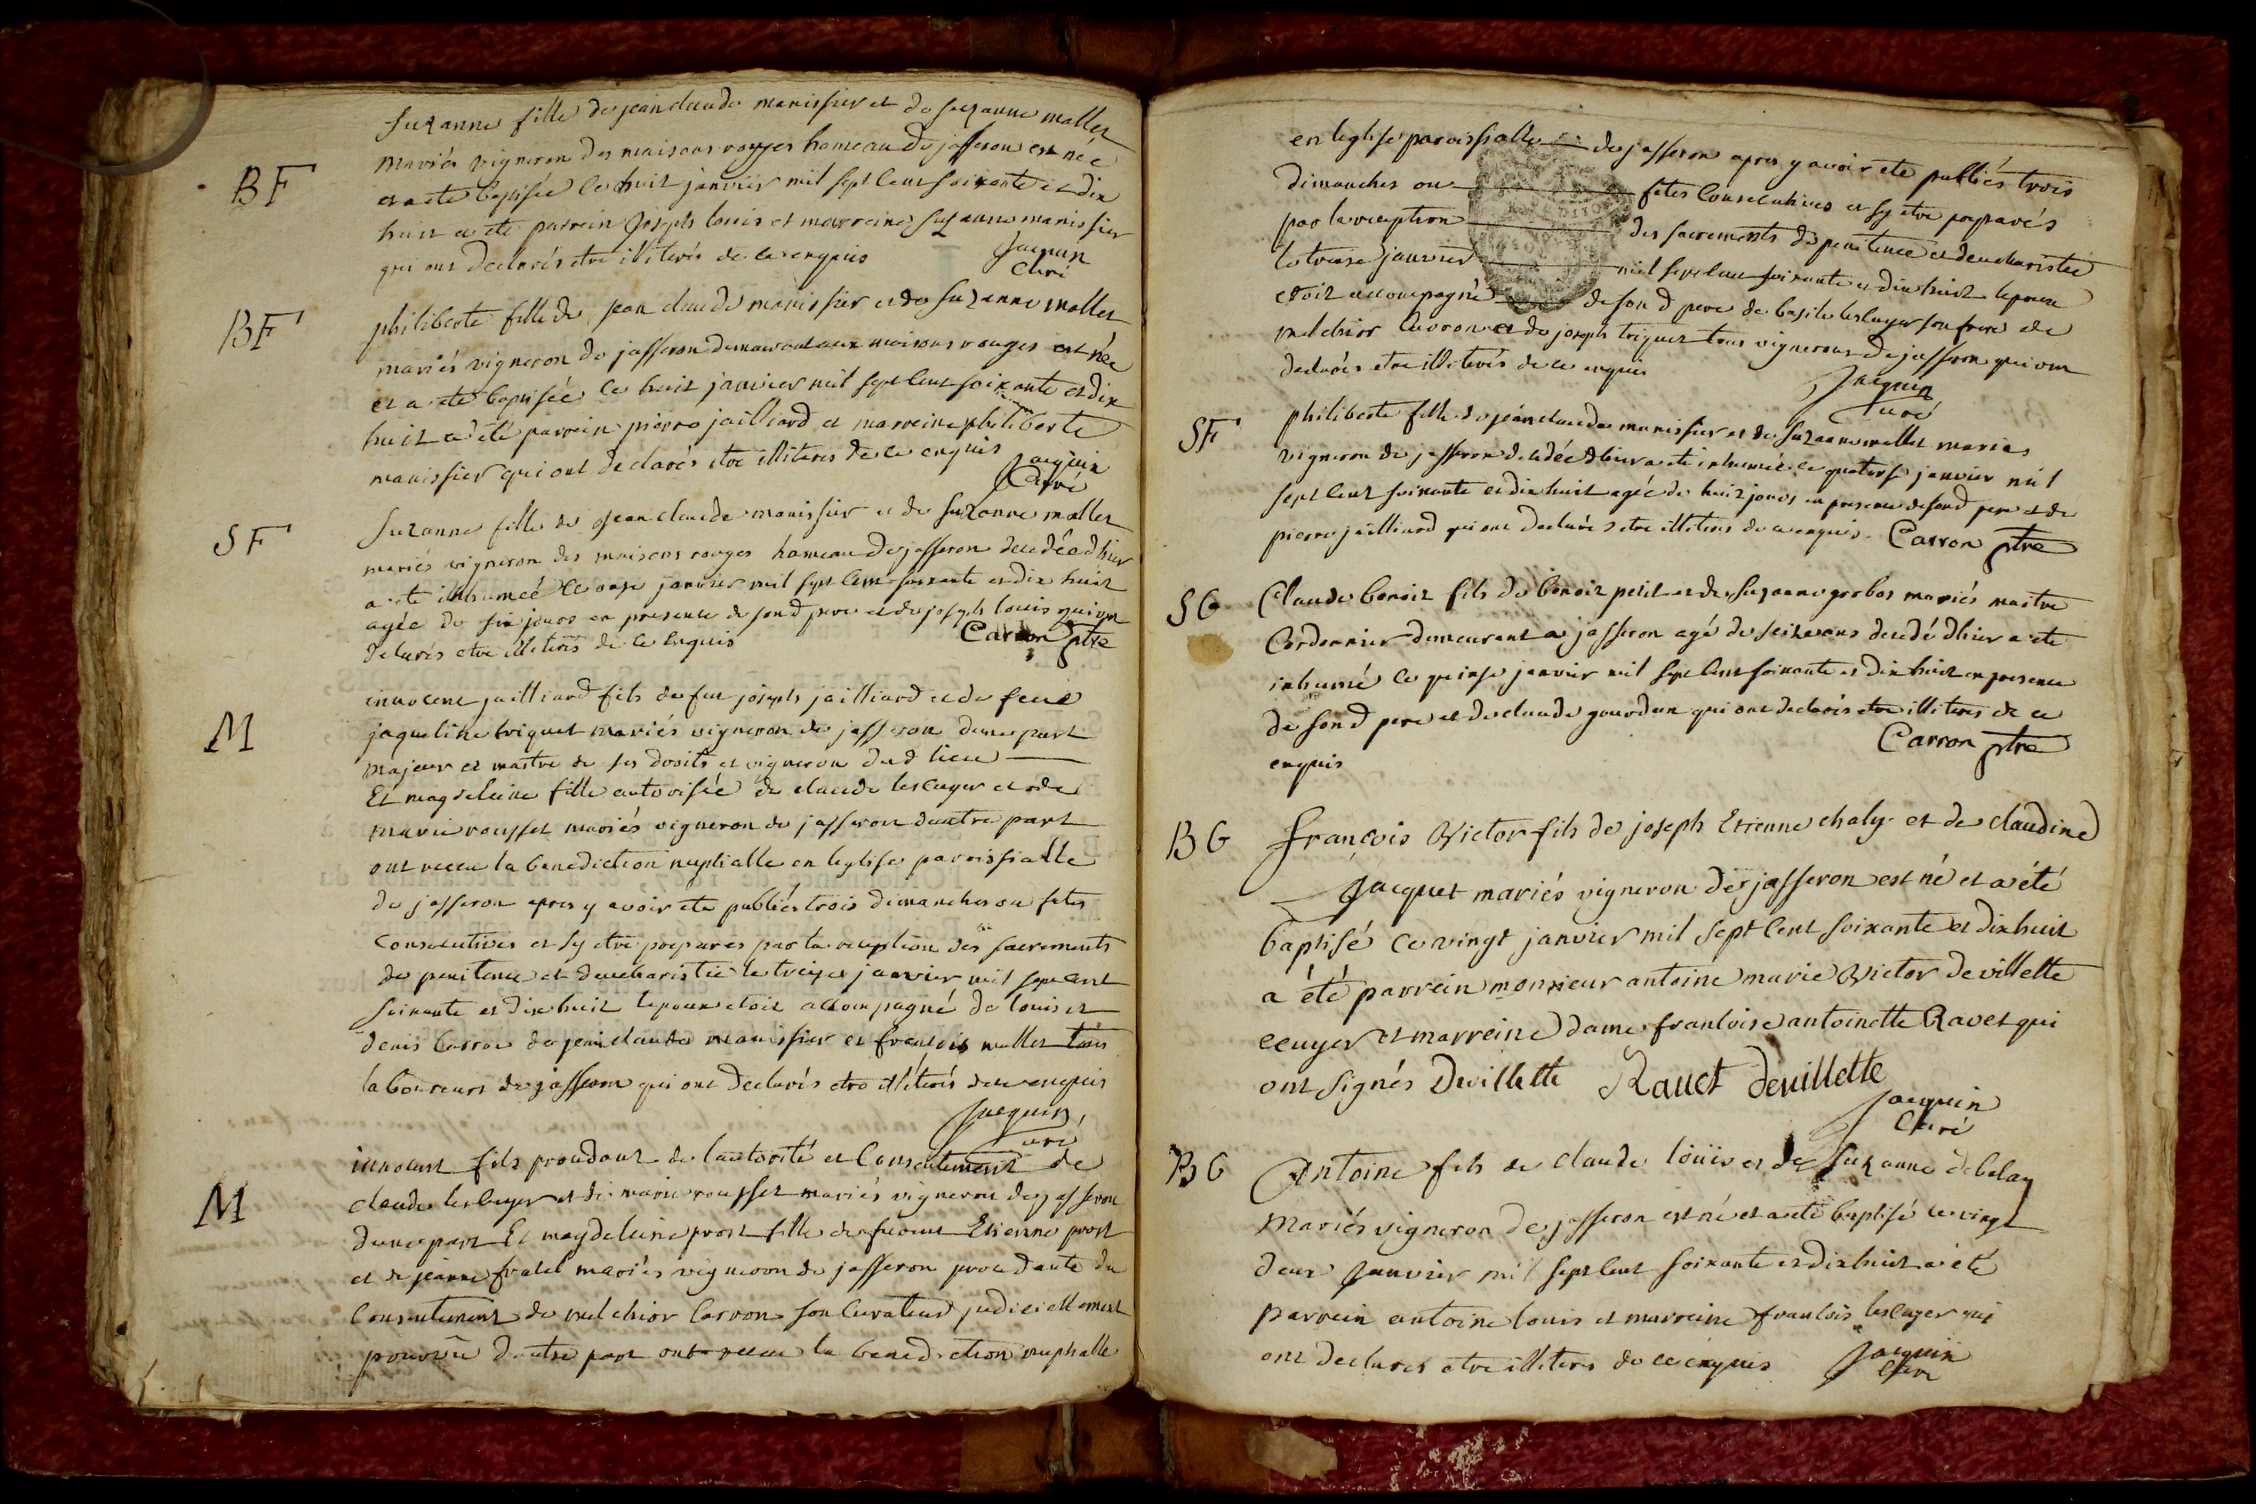 BF
Suzanne fille de jean claude manissier et de suzanne mallet
mariés vigneron des maisons rouges hameau de jasseron est née
et a eté baptisée le huit janvier mil sept cent soixante et dix
huit a été parrein joseph louis et marreine suzanne manissier
qui ont declarés etre illiterés de ce enquis
Jacquin
Curé
BF
philiberte fille de jean claude manissier et de suzanne mallet
mariés vigneron de jasseron demeurant aux maisons rouges est née
et a eté baptisée le huit janvier mil sept cent soixante et dix
huit a été parrein pierre jailliard et marreine philiberte
manissier qui ont declarés etre illiteres de ce enquis
Jacquin
Curé
SF
Suzanne fille de jean claude manissier et de suzanne mallet
mariés vigneron des maisons rouges hameau de jasseron decedée d'hier
a eté inhumée le onze janvier mil sept cent soixante et dix huit
agée de six jours en presence de son d pere et de joseph louis qui ont
declarés etre illiterés de ce enquis
Carron ptre
M
innocent jailliard fils de feu joseph jailliard et de feue
jaqueline triquet mariés vigneron de jasseron dune part
majeur et maitre de ses droits et vigneron dud lieu
Et magdeleine fille autorisée de claude lescuyer et de
marie rousset mariés vigneron de jasseron dautre part
ont receu la benediction nuptialle en leglise paroissialle
de jasseron apres y avoir ete publiés trois dimanches ou fetes
consecutives et sy etre preparés par la reception des sacrements
de penitence et deucharistie le treize janvier mil sept cent
soixante et dix huit lepoux etoit accompagné de louis et
denis Carron de jean claude manissier et francois mallet tous
laboureurs de jasseron qui ont declarés etre illiterés de ce enquis
Jacquin
Curé
M
innocent fils procedant de lautorité et Consentement de
claude lescuyer et de marie rousset mariés vigneron de jasseron
dune part Et magdeleine prost fille de Etienne prost
et de jeanne fratel mariés vigneron de jasseron procedante du
Consentement de melchior Carron son Curateur judiciellement
pourvû dautre part ont receu la benediction nuptialle
en leglise paroissialle de jasseron apres y avoir ete publiés trois
dimanches ou fetes consecutives et sy etre preparés
par la reception des sacrements de penitence et deucharistie
le treize janvier mil sept cent soixante et dix huit lepoux
etoit accompagné de son d pere de basile lescuyer son frere de
melchior Carron et de joseph triquet tous vignerons de jasseron qui ont
declarés etre illiterés de ce enquis
Jacquin
Curé
SF
philiberte fille de jean claude manissier et de suzanne mallet mariés
vigneron de jasseron decedée d'hier a eté inhumée le quatorse janvier mil
sept cent soixante et dix huit agée de huit jours en presence de son d pere et de
pierre jailliard qui ont declarés etre illiteres de ce enquis. Carron ptre
SG
Claude benoit fils de benoit petit et de suzanne grobos mariés maitre
Cordonnier demeurant a jasseron agé de seize ans decedé d'hier a eté
inhumé le quinse janvier mil sept cent soixante et dix huit en presence
de son d pere et de claude gourdan qui ont declarés etre illiteres de ce
enquis
Carron ptre
BG
françois Victor fils de joseph Etienne chaly et de claudine
Jacquet mariés vigneron de jasseron est né et a été
baptisé ce vingt janvier mil sept cent soixante et dix huit
a été parrein monsieur antoine marie Victor devillette
ecuyer et marreine dame francoise antoinette Ravet qui
ont signés Devillette Rauet deuillette
Jacquin
Curé
BG
Antoine fils de claude louis et de suzanne debelay
Mariés vigneron de jasseron est né et a eté baptisé ce vingt
deux janvier mil sept cent soixante et dix huit a été
parrein antoine louis et marreine francois lescuyer qui
ont declarés etre illiteres de ce enquis
Jacquin
Curé